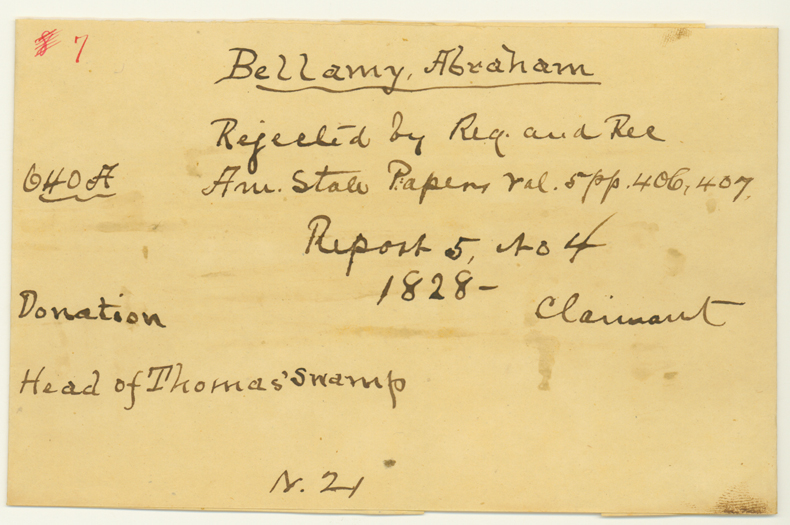 7
Bellamy, Abraham
Rejected by Reg. and Rec
640 A Am. State Papers Vol. 5 pp. 406, 407.
Report 5, No 4
1828-
Donation Claimant
Head of Thomas' Swamp
N. 21